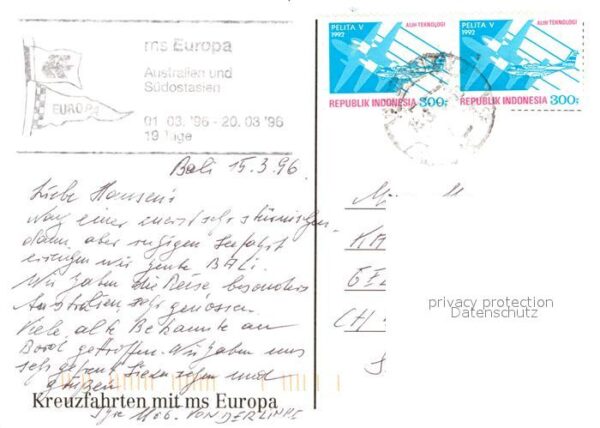 ms Europa
Australien und
Südostasien
EUROPA
01.03.'96 - 20.03.'96
19 Tage
PELITA V
1992
ALIH TEKNOLOGI
REPUBLIK INDONESIA 300;-
PELITA V
1992
ALIH TEKNOLOGI
REPUBLIK INDONESIA 300;-
Bali 15.3.96.
Liebe Hansen's
Nach einer zuerst sehr stürmischen
dann aber ruhigen Seefahrt
erreichen wir heute BALI.
Wir haben die Reise besonders
Australien sehr genossen.
Viele alte Bekannte an
Bord getroffen. Wir haben uns
sehr gefreut Sie zu sehen und
grüßen
CH
privacy protection
Datenschutz
Kreuzfahrten mit ms Europa
Ihre VON DER LINDE